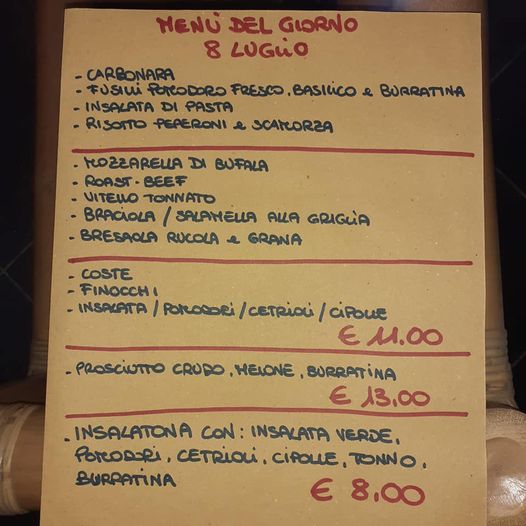 MENÙ DEL GIORNO
8 LUGLIO
- CARBONARA
- FUSILLI POMODORO FRESCO, BASILICO e BURRATINA
- INSALATA DI PASTA
- RISOTTO PEPERONI e SCAMORZA
- MOZZARELLA DI BUFALA
- ROAST-BEEF
- VITELLO TONNATO
- BRACIOLA / SALAMELLA ALLA GRIGLIA
- BRESAOLA RUCOLA e GRANA
- COSTE
- FINOCCHI
- INSALATA / POMODORI / CETRIOLI / CIPOLLE
€ 11.00
- PROSCIUTTO CRUDO, MELONE, BURRATINA
€ 13,00
- INSALATONA CON: INSALATA VERDE,
POMODORI, CETRIOLI, CIPOLLE, TONNO,
BURRATINA
€ 8,00